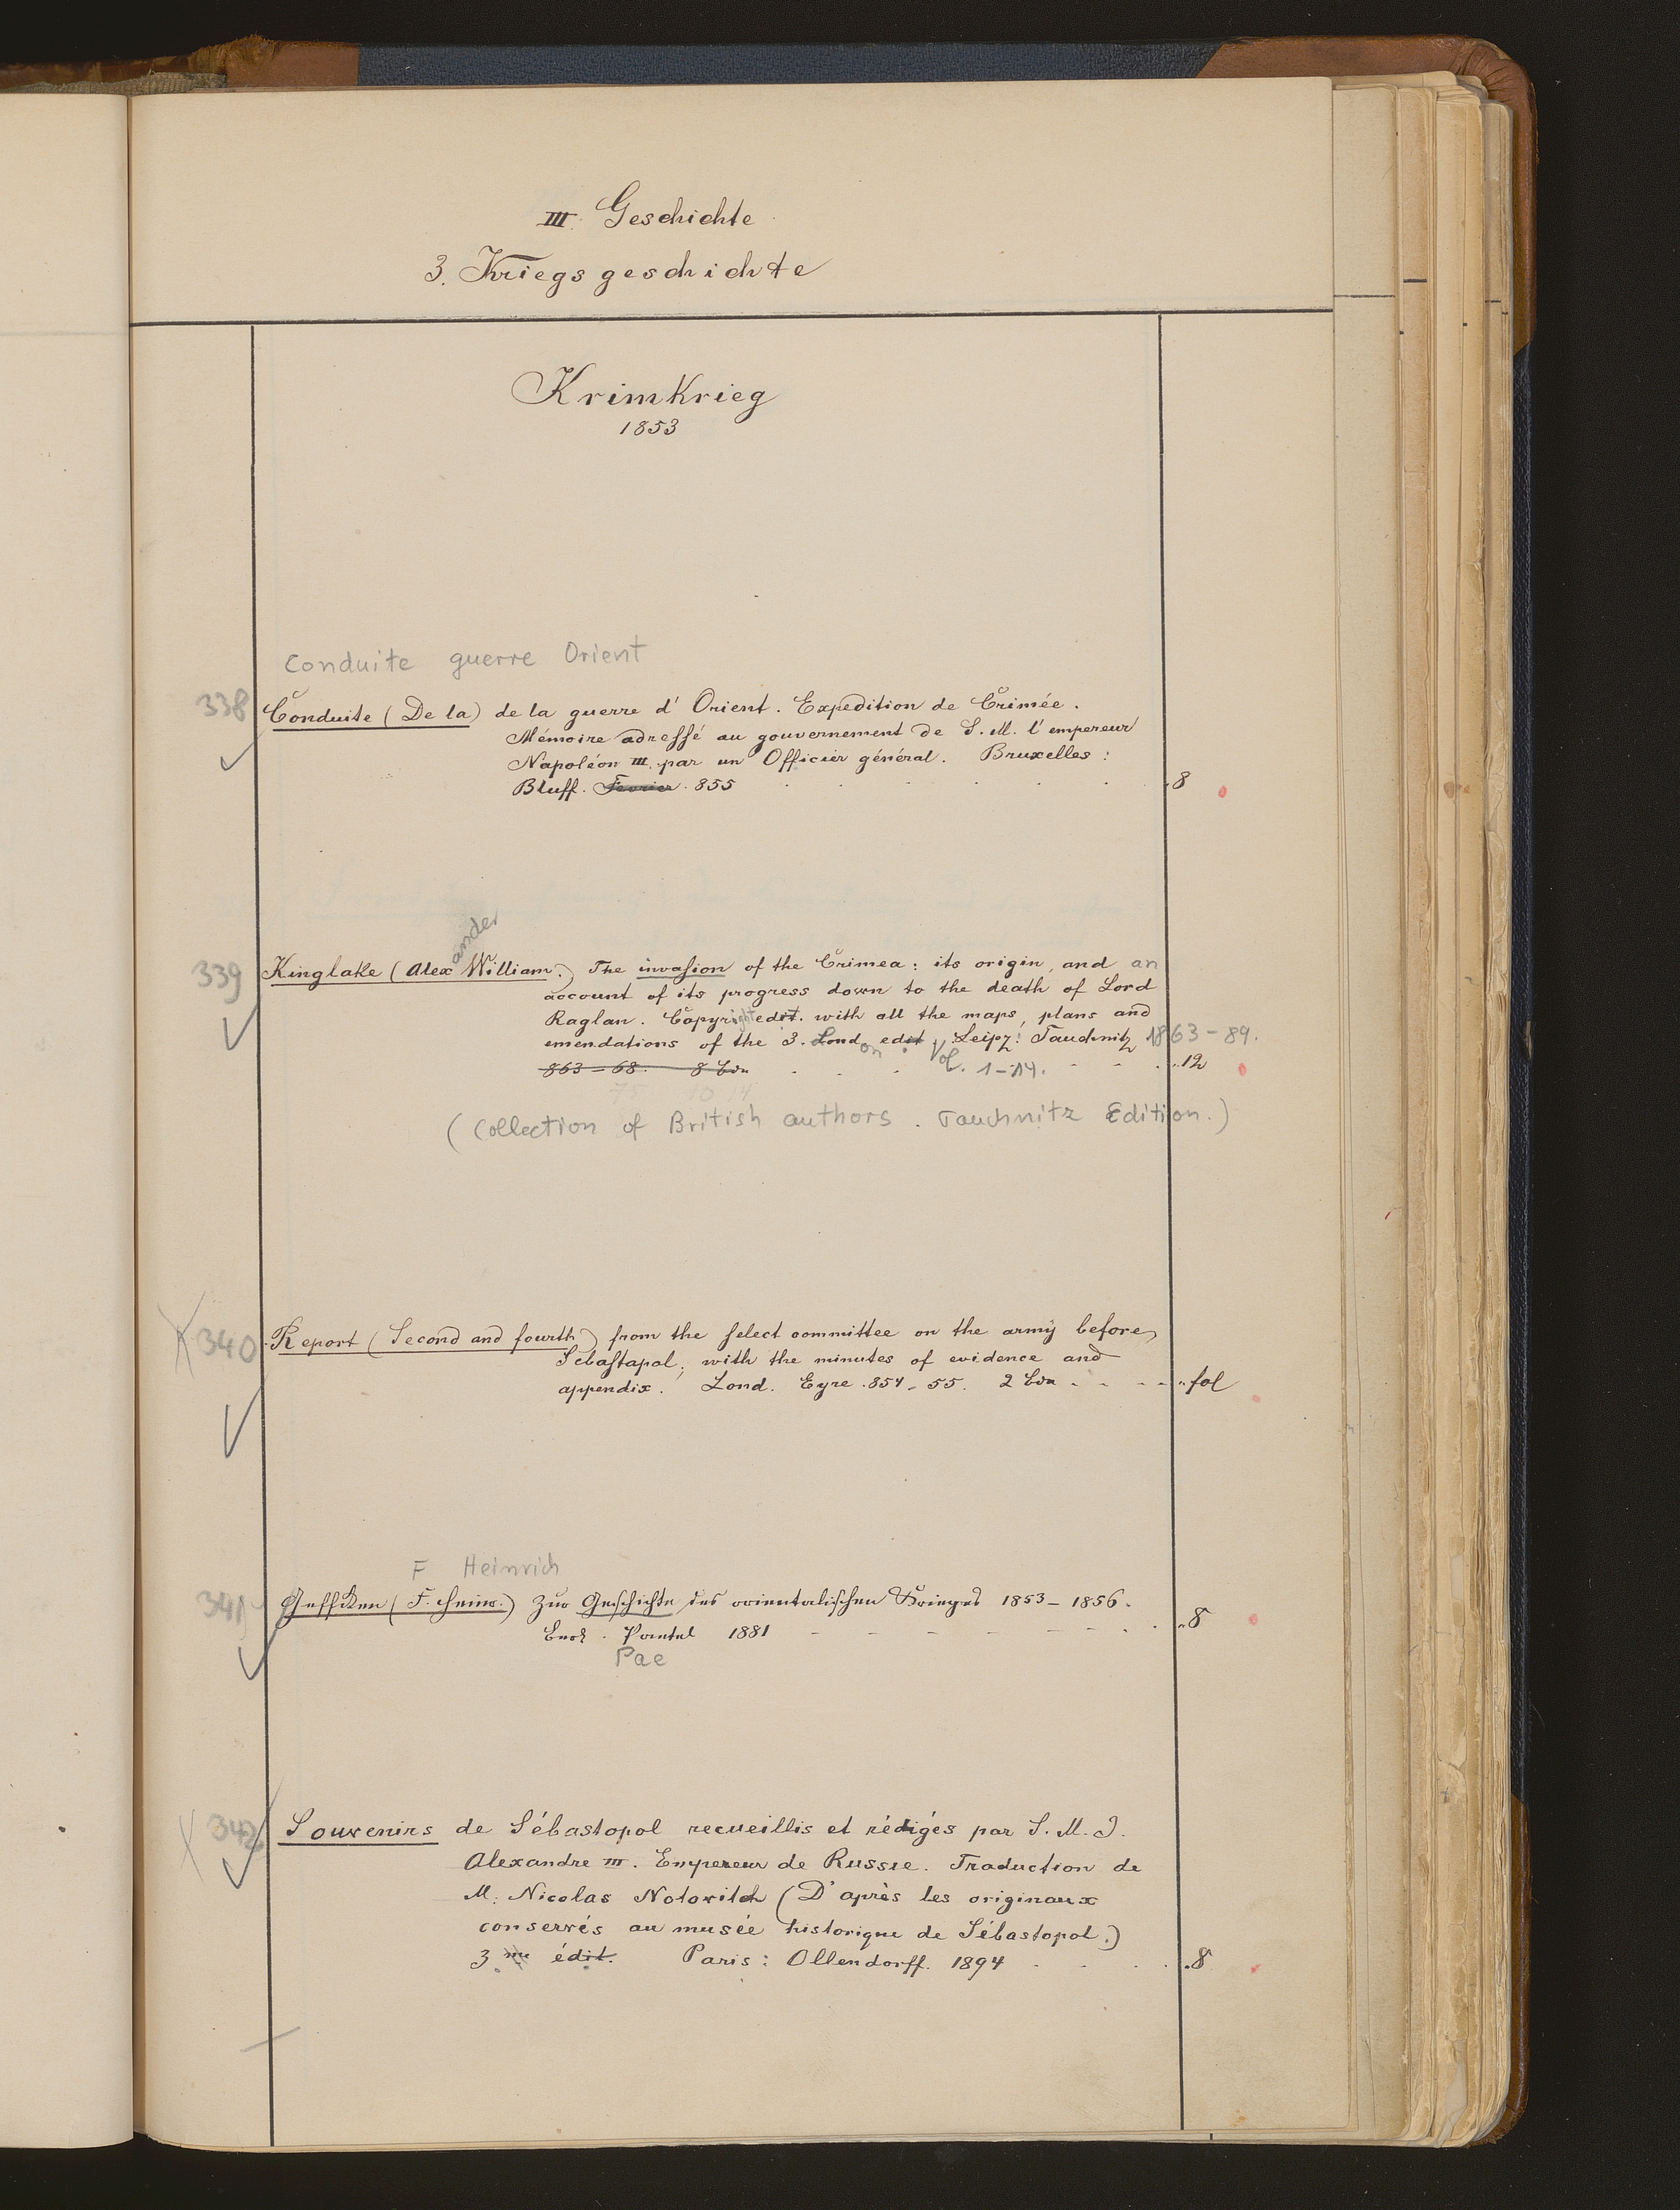 III. Geschichte
3. Kriegsgeschichte
Krimkrieg
1853
Conduite guerre Orient
338 Conduite (De la) de la guerre d'Orient. Expedition de Crimée.
Mémoire adressé au gouvernement de S. M. l'empereur
Napoléon III. par un Officier général. Bruxelles:
Bluff. Fevrier. 855 8
ander
339 Kinglake (Alex William.) The invasion of the Crimea: its origin, and an
account of its progress down to the death of Lord
Raglan. Copyright edit. with all the maps, plans and
emendations of the 3. London edit. Leipz: Tauchnitz 1863-89.
863-68. 8 Bde Vol. 1-14. 12
75 10 14
(Collection of British authors. Tauchnitz Edition.)
340 Report (Second and fourth) from the select committee on the army before
Sebastapol; with the minutes of evidence and
appendix. Lond. Eyre. 854-55. 2 Bde fol
F Heinrich
341 Geffken (F. Heinr.) Zur Geschichte des orientalischen Krieges 1853-1856.
Berl. Paetel 1881 8
Pae
342 Souvenirs de Sébastopol recueillis et rédigés par S. M. I.
Alexandre III. Empereur de Russie. Traduction de
M. Nicolas Notovitch (D'après les originaux
conservés au musée historique de Sébastopol.)
3me édit. Paris: Ollendorff. 1894 8